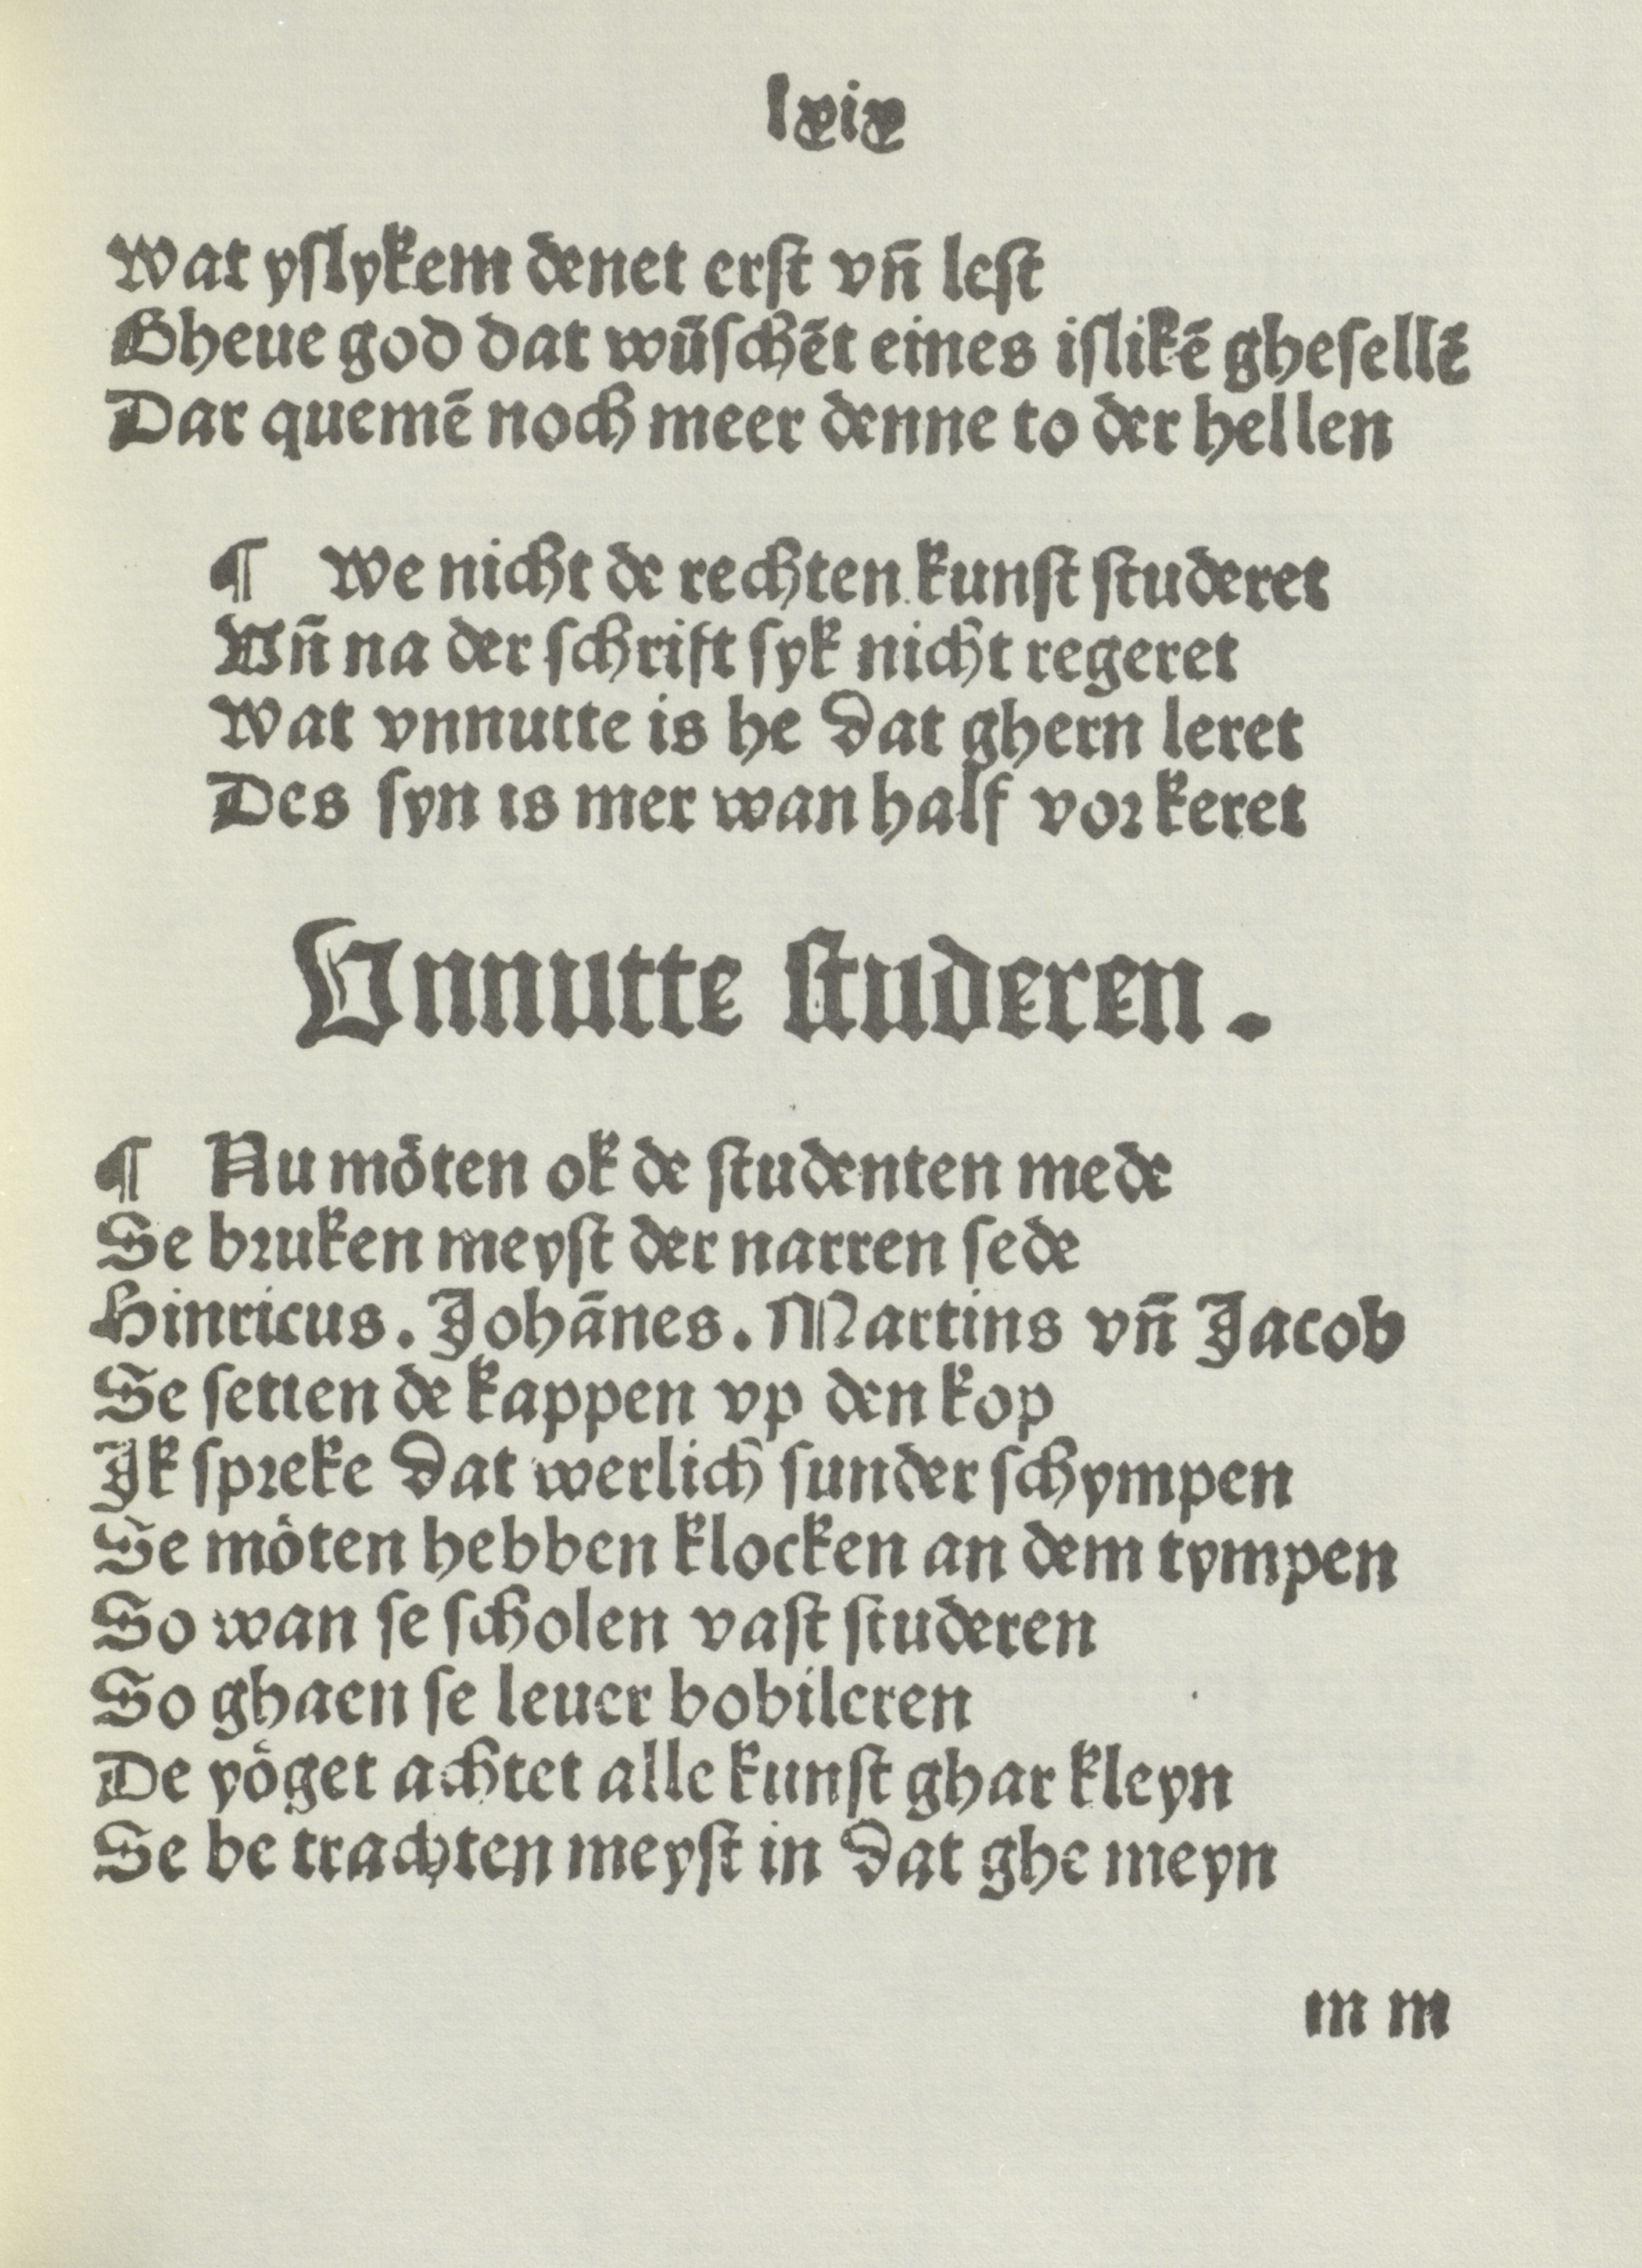 lxix
Wat yſlykem denet erſt vn̄ leſt
Gheue god dat wūſchēt eines iſlikē gheſellē
Dar quemē noch meer denne to der hellen
¶ We nicht de rechten kunſt ſtuderet
Vn̄ na der ſchrift ſyk nicht regeret
Wat vnnutte is he dat ghern leret
Des ſyn is mer wan half vorkeret
Vnnutte ſtuderen.
¶ Nu mo̊ten ok de ſtudenten mede
Se bruken meyſt der narren ſede
Hinricus. Johānes. Martins vn̄ Jacob
Se ſetten de kappen vp den kop
Ik ſpreke dat werlich ſunder ſchympen
Se mo̊ten hebben klocken an dem tympen
So wan ſe ſcholen vaſt ſtuderen
So ghaen ſe leuer bobileren
De yo̊get achtet alle kunſt ghar kleyn
Se be trachten meyſt in dat ghe meyn
m m